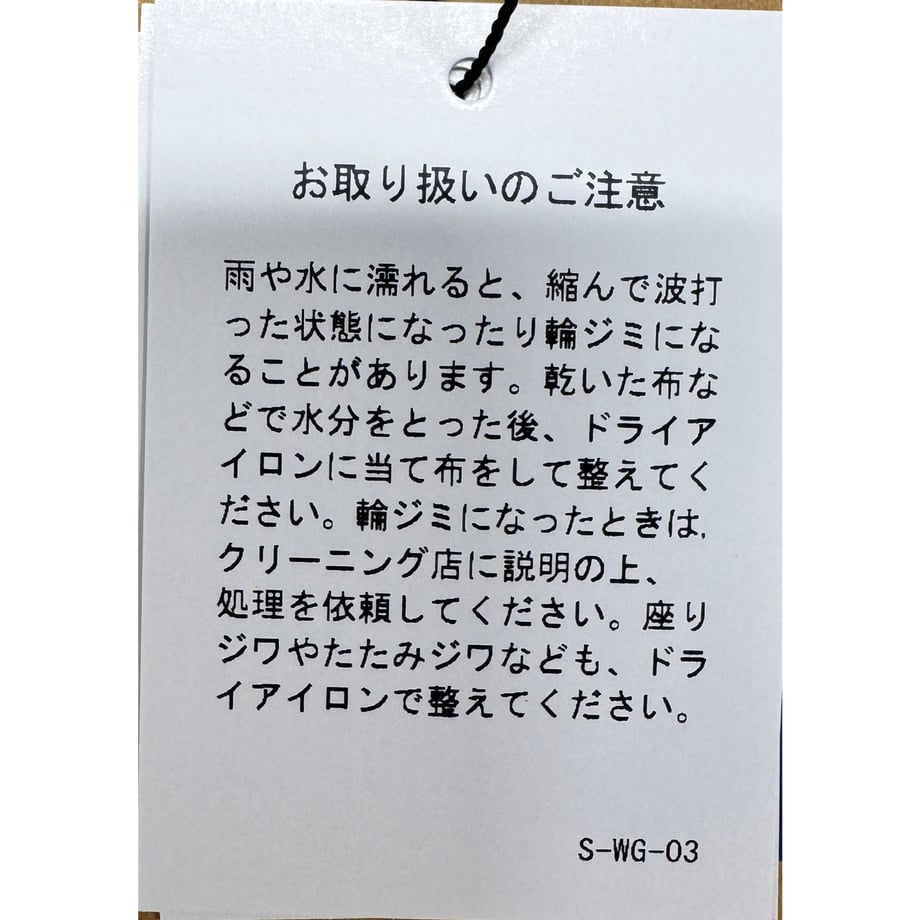 お取り扱いのご注意
雨や水に濡れると、縮んで波打
った状態になったり輪ジミにな
ることがあります。乾いた布な
どで水分をとった後、ドライア
イロンに当て布をして整えてく
ださい。輪ジミになったときは、
クリーニング店に説明の上、
処理を依頼してください。座り
ジワやたたみジワなども、ドラ
イアイロンで整えてください。
S-WG-03